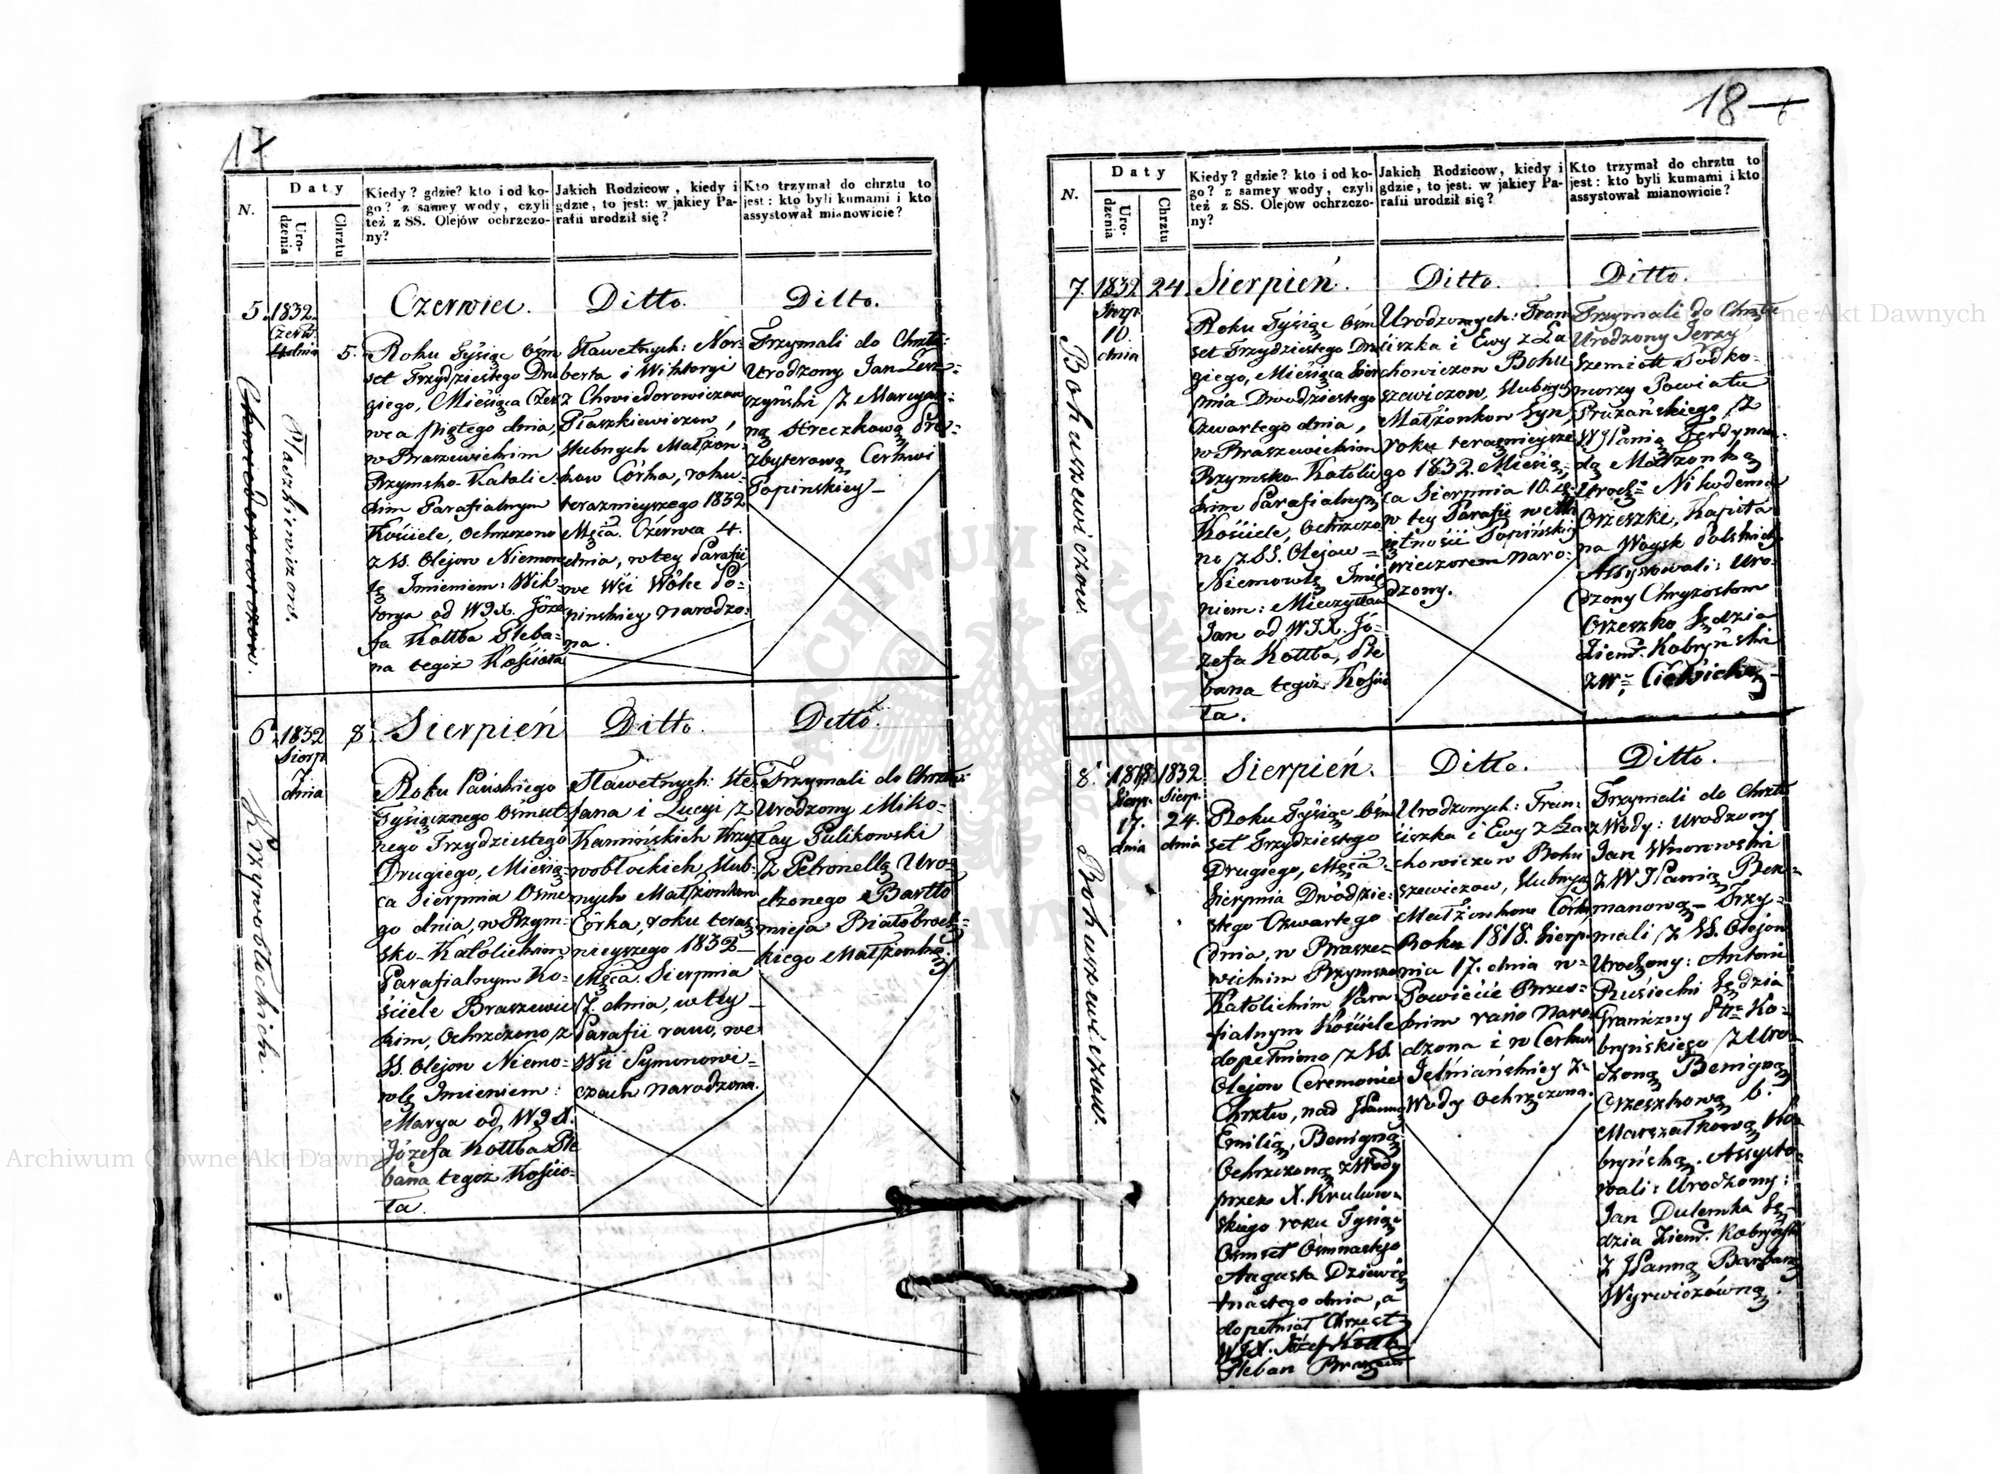 17
N.
Daty
Urodzenia
Chrztu
Kiedy? gdzie? kto i od ko-
go? z samey wody, czyli
też z SS. Olejów ochrzczo-
ny?
Jakich Rodzicow, kiedy i
gdzie, to jest: w jakiey Pa-
rafii urodził się?
Kto trzymał do chrztu to
jest: kto byli kumami i kto
assystował mianowicie?
5.
1832
Czerw.
4 dnia
5.
Chwiedorowiczow.
Staszkiewiczow.
Czerwiec.
Roku Tysiąc Ośm
set Trzydziestego Dru
giego, Miesiąca Czer
wca piątego dnia,
w Braszewickim
Rzymsko-Katolic-
kim Parafialnym
Kościele, Ochrzczono
z SS. Olejow Niemow
lę Imieniem: Wik-
torya od WJX. Józe
fa Kottba Pleba-
na tegoż Kościoła
Ditto.
Sławetnych: Nor-
berta i Wiktoryi
z Chwiedorowiczow
Staszkiewiczow,
Slubnych Małżon-
kow Córka, roku
teraznieyszego 1832
Męca. Czérwca 4.
dnia, w tey Parafii
we Wsi Wólce Po-
pinskiey narodzo-
na.
Ditto.
Trzymali do Chrztu:
Urodzony Jan Lesz-
czyński z Maryan-
ną Streczkową Pre-
zbyterową Cerkwi
Popinskiey
6.
1832
Sierp.
7
dnia
8.
Krzywobłockich.
Sierpień
Roku Pańskiego
Tysiącznego Ośmset
nego Trzydziestego
Drugiego, Miesią-
ca Sierpnia Osme
go dnia, w Rzym-
sko-Katolickim
Parafialnym Ko-
ściele Braszewic
kim, Ochrzczono z
SS. Olejow Niemo-
wlę Imieniem:
Marya od WJX.
Józefa Kottba Ple
bana tegoż Kościo-
ła.
Ditto.
Sławetnych: Ste-
fana i Lucyi z
Kamińskich Krzy
wobłockich, Slub-
nych Małżonkow
Córka, roku teraz
nieyszego 1832
Męca. Sierpnia
7. dnia, w tey
Parafii rano, we
Wsi Symonowi-
czach narodzona.
Ditto.
Trzymali do Chrztu:
Urodzony Miko-
łay Pulikowski
z Petronellą Uro-
dzonego Bartło
mieja Białobrzes-
kiego Małżonką.
18
N.
Daty
Urodzenia
Chrztu
Kiedy? gdzie? kto i od ko-
go? z samey wody, czyli
też z SS. Olejów ochrzczo-
ny?
Jakich Rodzicow, kiedy i
gdzie, to jest: w jakiey Pa-
rafii urodził się?
Kto trzymał do chrztu to
jest: kto byli kumami i kto
assystował mianowicie?
7.
1832
Sierp.
10
dnia
24.
Bohuszewiczow.
Sierpień.
Roku Tysiąc Ośm
set Trzydziestego Dru
giego, Miesiąca Sier
pnia Dwudziestego
Czwartego dnia,
w Braszewickim
Rzymsko-Katolic
kim Parafialnym
Kościele, Ochrzczo
no z SS. Olejow
Niemowlę Imie
niem: Mieczysław
Jan od WJX. Jó-
zefa Kottba, Ple
bana tegoż Kościo
ła.
Ditto.
Urodzonych: Fran
ciszka i Ewy z Ła
chowiczow Bohu
szewiczow, Slubnych
Małżonkow syn,
roku teraznieysze
go 1832. Miesią-
ca Sierpnia 10. dnia
w tey Parafii w Ma
jętności Popińskiey
wieczorem naro-
dzony.
Ditto.
Trzymali do Chrztu
Urodzony Jerzy
Szemiott Podko-
morzy Powiatu
Prużańskiego z
WJPanią Ferdynan
dą Małżonką
Urodz: Nikodema
Orzeszki, Kapita
na Woysk Polskich
Assystowali: Uro-
dzony Chryzostom
Orzeszko Sędzia
Ziem. Kobryński
8.
1818
Sierp.
17.
dnia
1832
Sierp.
24.
dnia
Bohuszewiczow.
Sierpień.
Roku Tysiąc Ośm
set Trzydziestego
Drugiego, Męca
Sierpnia Dwódzie-
stego Czwartego
dnia, w Brasze-
wickim Rzymsko
Katolickim Para
fialnym Kościele
dopełniono z SS.
Olejow Ceremonie
Chrztu, nad Panną
Emilią, Benigną
Ochrzczoną z Wody
przez X. Krulikow
skiego roku Tysiąc
Ośmset Ośmnastego
Augusta Dziewię
tnastego dnia, a
dopełniał Chrzest
WJX. Józef Kottb
Pleban
Ditto.
Urodzonych: Fran-
ciszka i Ewy z Ła
chowiczow Bohu
szewiczow, Slubnych
Małżonkow Córka
Roku 1818. Sierp-
nia 17. dnia w
Powiecie Brzes-
kim rano naro
dzona i w Cerkwi
Jelniańskiey z
Wody Ochrzczona.
Ditto.
Trzymali do Chrztu
z Wody: Urodzony
Jan Wnorowski
z WJPanią
manową Trzy-
mali z SS. Olejow
Urodzony: Antoni
Rusiecki Sędzia
Graniczny Ptu Ko-
bryńskiego z Uro-
dzoną Benigną
Orzeszkową b.
Marszałkową Ko
bryńską. Assysto-
wali: Urodzony:
Jan Dulemba Sę-
dzia Ziem. Kobryński
z Panną Barbarą
Wyrwiczówną.
Archiwum Główne Akt Dawnych
Archiwum Główne Akt Dawnych
ARCHIWUM GŁÓWNE AKT DAWNYCH